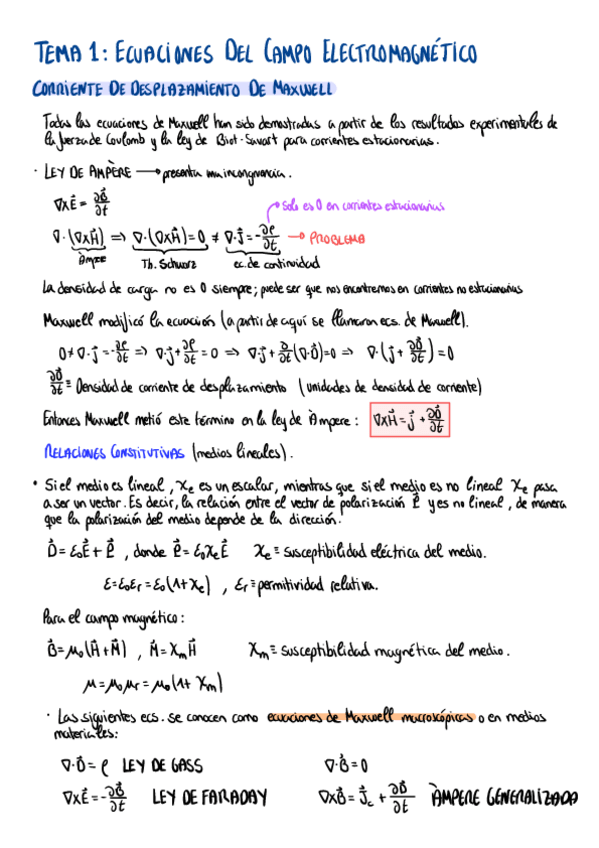 TEMA 1: ECUACIONES DEL CAMPO ELECTROMAGNÉTICO
CORRIENTE DE DESPLAZAMIENTO DE MAXWELL
Todas las ecuaciones de Maxwell han sido demostradas a partir de los resultados experimentales de
la fuerza de Coulomb y la ley de Biot-Savart para corrientes estacionarias.
· LEY DE AMPÈRE → presenta una incongruencia.
∇×E⃗ = ∂B⃗/∂t
solo es 0 en corrientes estacionarias
∇·(∇×H⃗) ⇒ ∇·(∇×H⃗) = 0 ≠ ∇·J⃗ = -∂ρ/∂t → PROBLEMA
Ampere Th. Schwarz ec. de continuidad
La densidad de carga no es 0 siempre; puede ser que nos encontremos en corrientes no estacionarias
Maxwell modificó la ecuación (a partir de aquí se llamaron ecs. de Maxwell).
0 ≠ ∇·j = -∂ρ/∂t ⇒ ∇·j + ∂ρ/∂t = 0 ⇒ ∇·j + ∂/∂t (∇·D) = 0 ⇒ ∇·(j + ∂D⃗/∂t) = 0
∂D⃗/∂t ≡ Densidad de corriente de desplazamiento (unidades de densidad de corriente)
Entonces Maxwell metió este término en la ley de Ampere: ∇×H⃗ = j⃗ + ∂D⃗/∂t
RELACIONES CONSTITUTIVAS (medios lineales).
• Si el medio es lineal, χe es un escalar, mientras que si el medio es no lineal χe pasa
a ser un vector. Es decir, la relación entre el vector de polarización P⃗ y es no lineal, de manera
que la polarización del medio depende de la dirección.
D⃗ = ε₀E⃗ + P⃗, donde P⃗ = ε₀χeE⃗ χe ≡ susceptibilidad eléctrica del medio.
ε = ε₀εr = ε₀(1+χe), εr ≡ permitividad relativa.
Para el campo magnético:
B⃗ = μ₀(H⃗+M⃗), M⃗ = χmH⃗ χm ≡ susceptibilidad magnética del medio.
μ = μ₀μr = μ₀(1+χm)
· Las siguientes ecs. se conocen como ecuaciones de Maxwell macroscópicas o en medios
materiales:
∇·D⃗ = ρ LEY DE GASS ∇·B⃗ = 0
∇×E⃗ = -∂B⃗/∂t LEY DE FARADAY ∇×B⃗ = J⃗c + ∂D⃗/∂t ÀMPERE GENERALIZADA